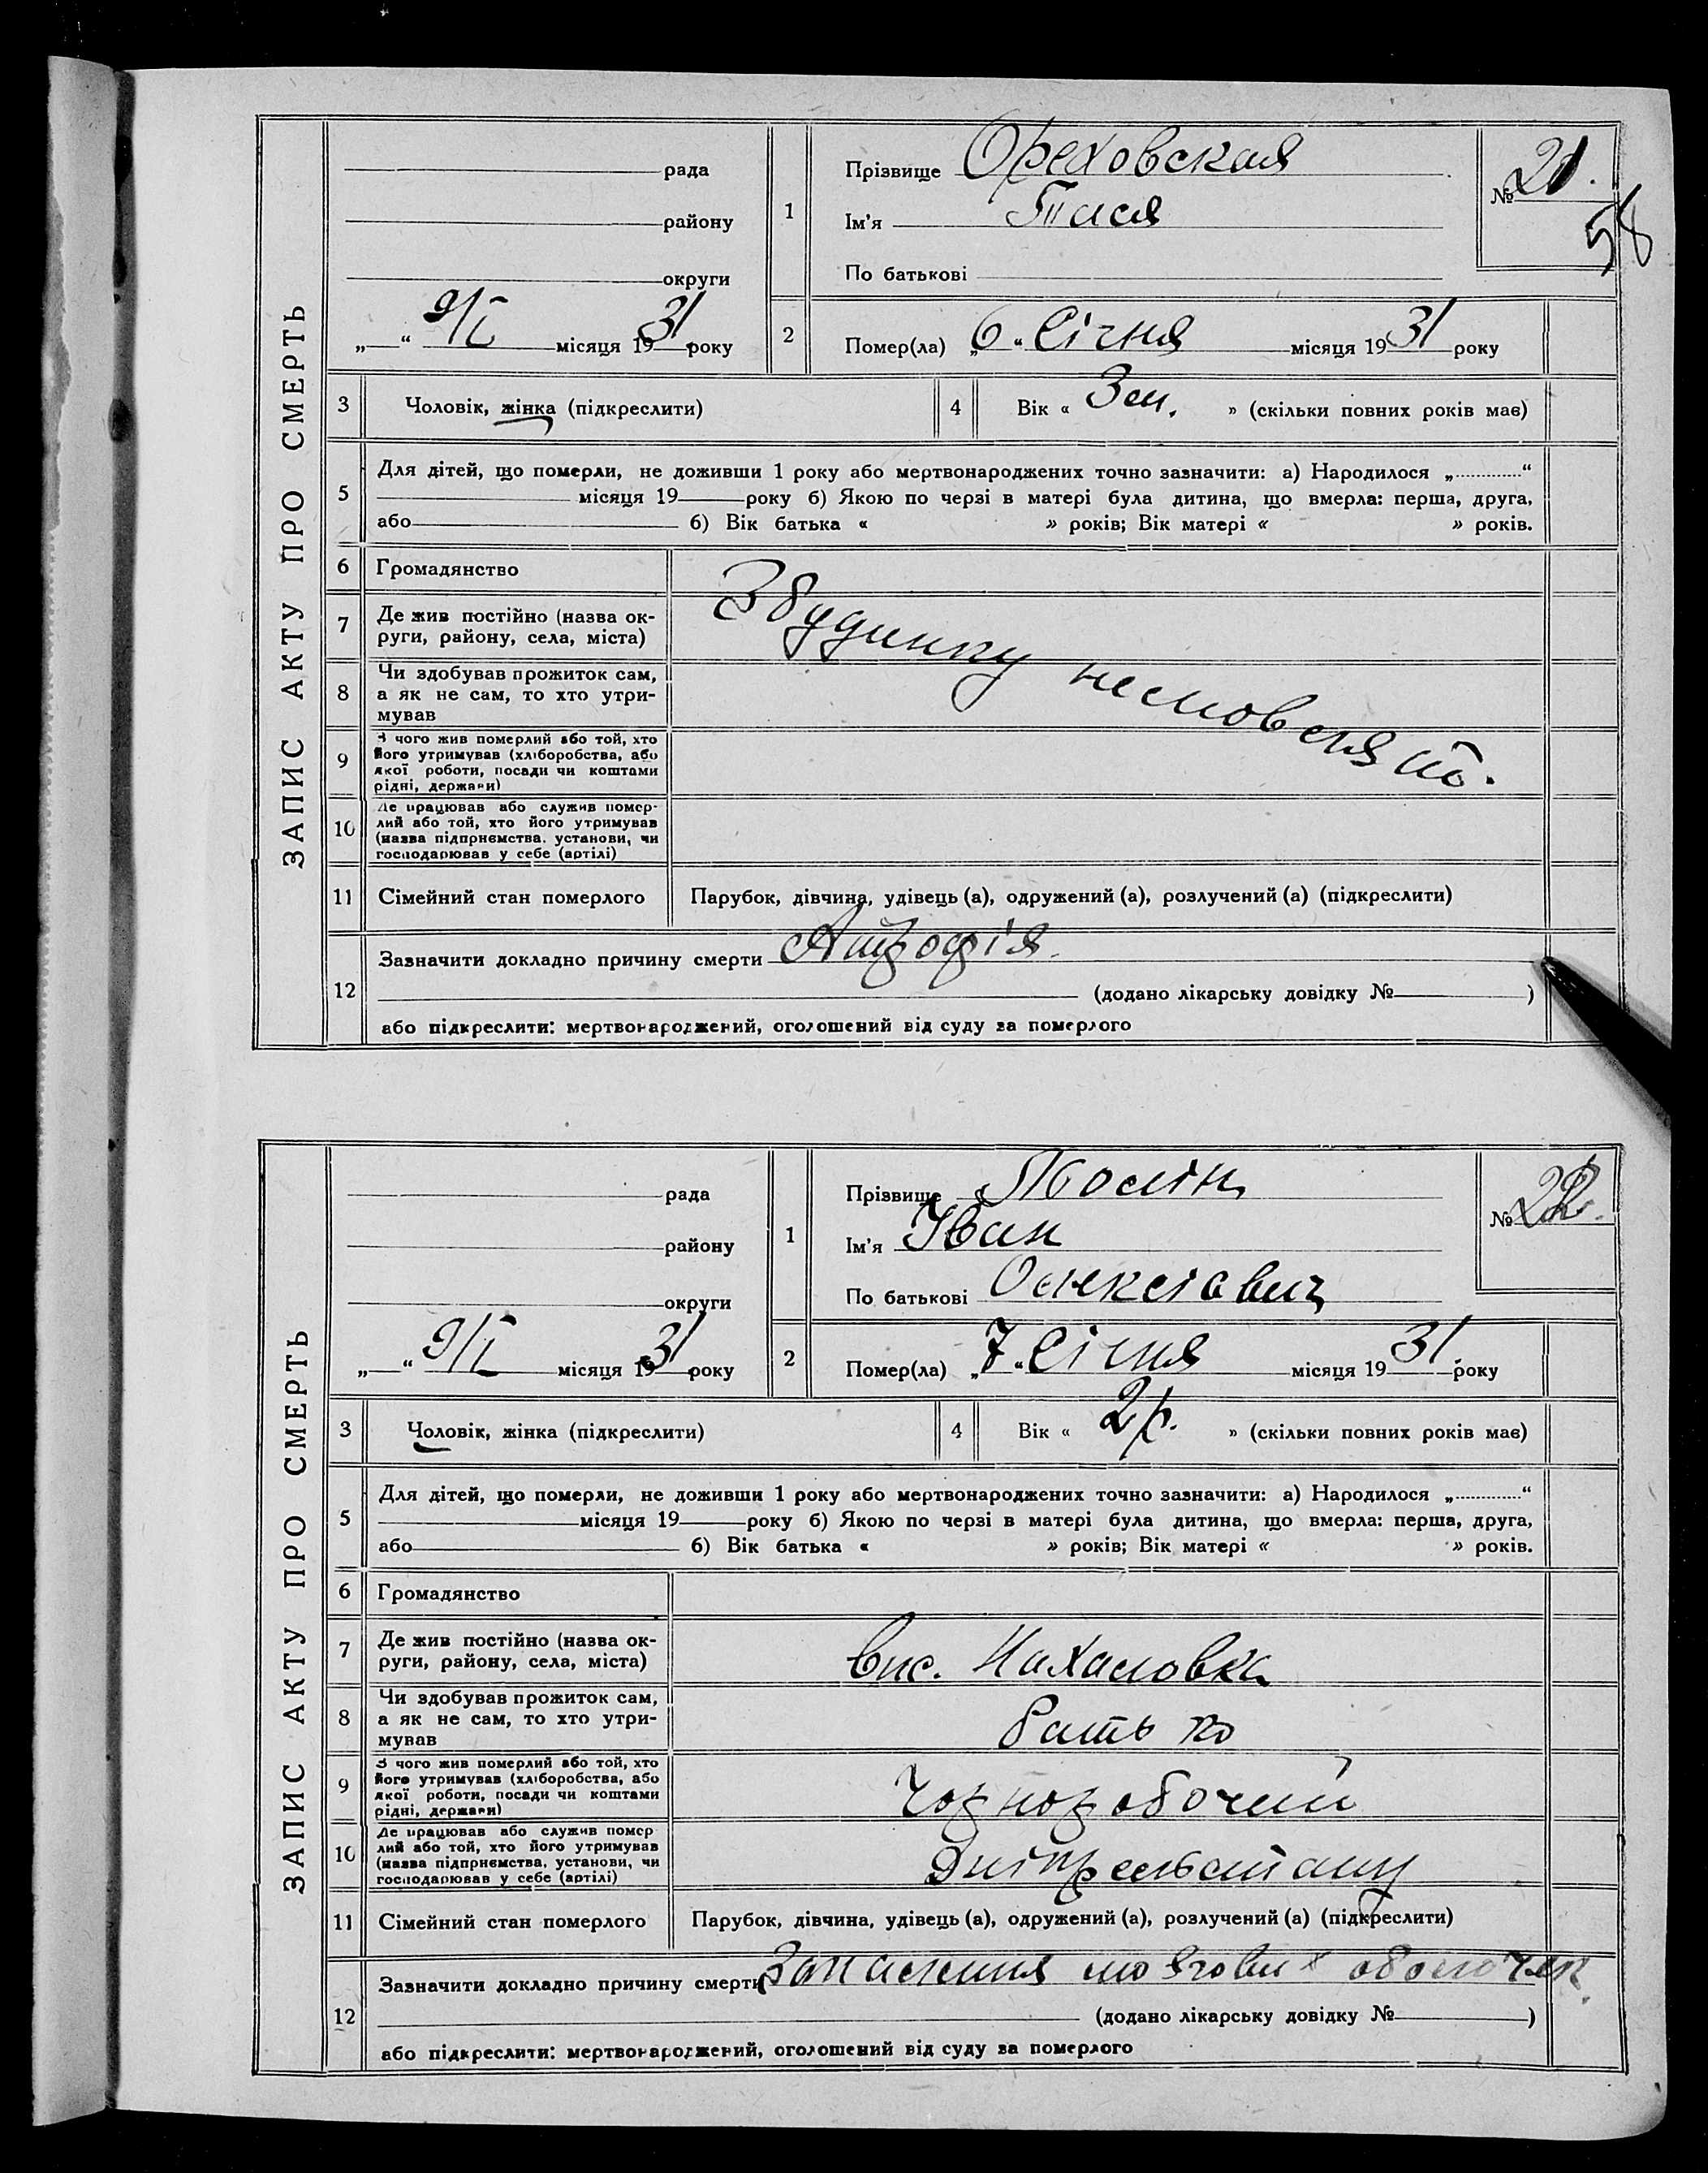 ЗАПИС АКТУ ПРО СМЕРТЬ
рада
району
округи
„ “ 9/I місяця 1931 року
1
Прізвище Ореховская
Ім'я Тася
По батькові
№ 21.
58
2
Помер(ла) „6“ Січня місяця 1931 року
3
Чоловік, жінка (підкреслити)
4
Вік « 3 м. » (скільки повних років має)
5
Для дітей, що померли, не доживши 1 року або мертвонароджених точно зазначити: а) Народилося „ “
місяця 19 року б) Якою по черзі в матері була дитина, що вмерла: перша, друга,
або б) Вік батька « » років; Вік матері « » років.
6
Громадянство
7
Де жив постійно (назва ок-
руги, району, села, міста)
З будинку немовлят.
8
Чи здобував прожиток сам,
а як не сам, то хто утри-
мував
9
З чого жив померлий або той, хто
його утримував (хліборобства, або
якої роботи, посади чи коштами
рідні, держави)
10
Де працював або служив помер-
лий або той, хто його утримував
(назва підприємства, установи, чи
господарював у себе (артілі)
11
Сімейний стан померлого
Парубок, дівчина, удівець (а), одружений (а), розлучений (а) (підкреслити)
12
Зазначити докладно причину смерти Атрофія.
(додано лікарську довідку № )
або підкреслити: мертвонароджений, оголошений від суду за померлого
ЗАПИС АКТУ ПРО СМЕРТЬ
рада
району
округи
„ “ 9/I місяця 1931 року
1
Прізвище
Ім'я Іван
По батькові
№ 22.
2
Помер(ла) „7“ Січня місяця 1931. року
3
Чоловік, жінка (підкреслити)
4
Вік « 2 р. » (скільки повних років має)
5
Для дітей, що померли, не доживши 1 року або мертвонароджених точно зазначити: а) Народилося „ “
місяця 19 року б) Якою по черзі в матері була дитина, що вмерла: перша, друга,
або б) Вік батька « » років; Вік матері « » років.
6
Громадянство
7
Де жив постійно (назва ок-
руги, району, села, міста)
Вис. Нахаловка
8
Чи здобував прожиток сам,
а як не сам, то хто утри-
мував
батько
9
З чого жив померлий або той, хто
його утримував (хліборобства, або
якої роботи, посади чи коштами
рідні, держави)
Чорноробочий
10
Де працював або служив помер
лий або той, хто його утримував
(назва підприємства, установи, чи
господарював у себе (артілі)
11
Сімейний стан померлого
Парубок, дівчина, удівець (а), одружений (а), розлучений (а) (підкреслити)
12
Зазначити докладно причину смерти Запалення мозгових оболочек.
(додано лікарську довідку № )
або підкреслити: мертвонароджений, оголошений від суду за померлого